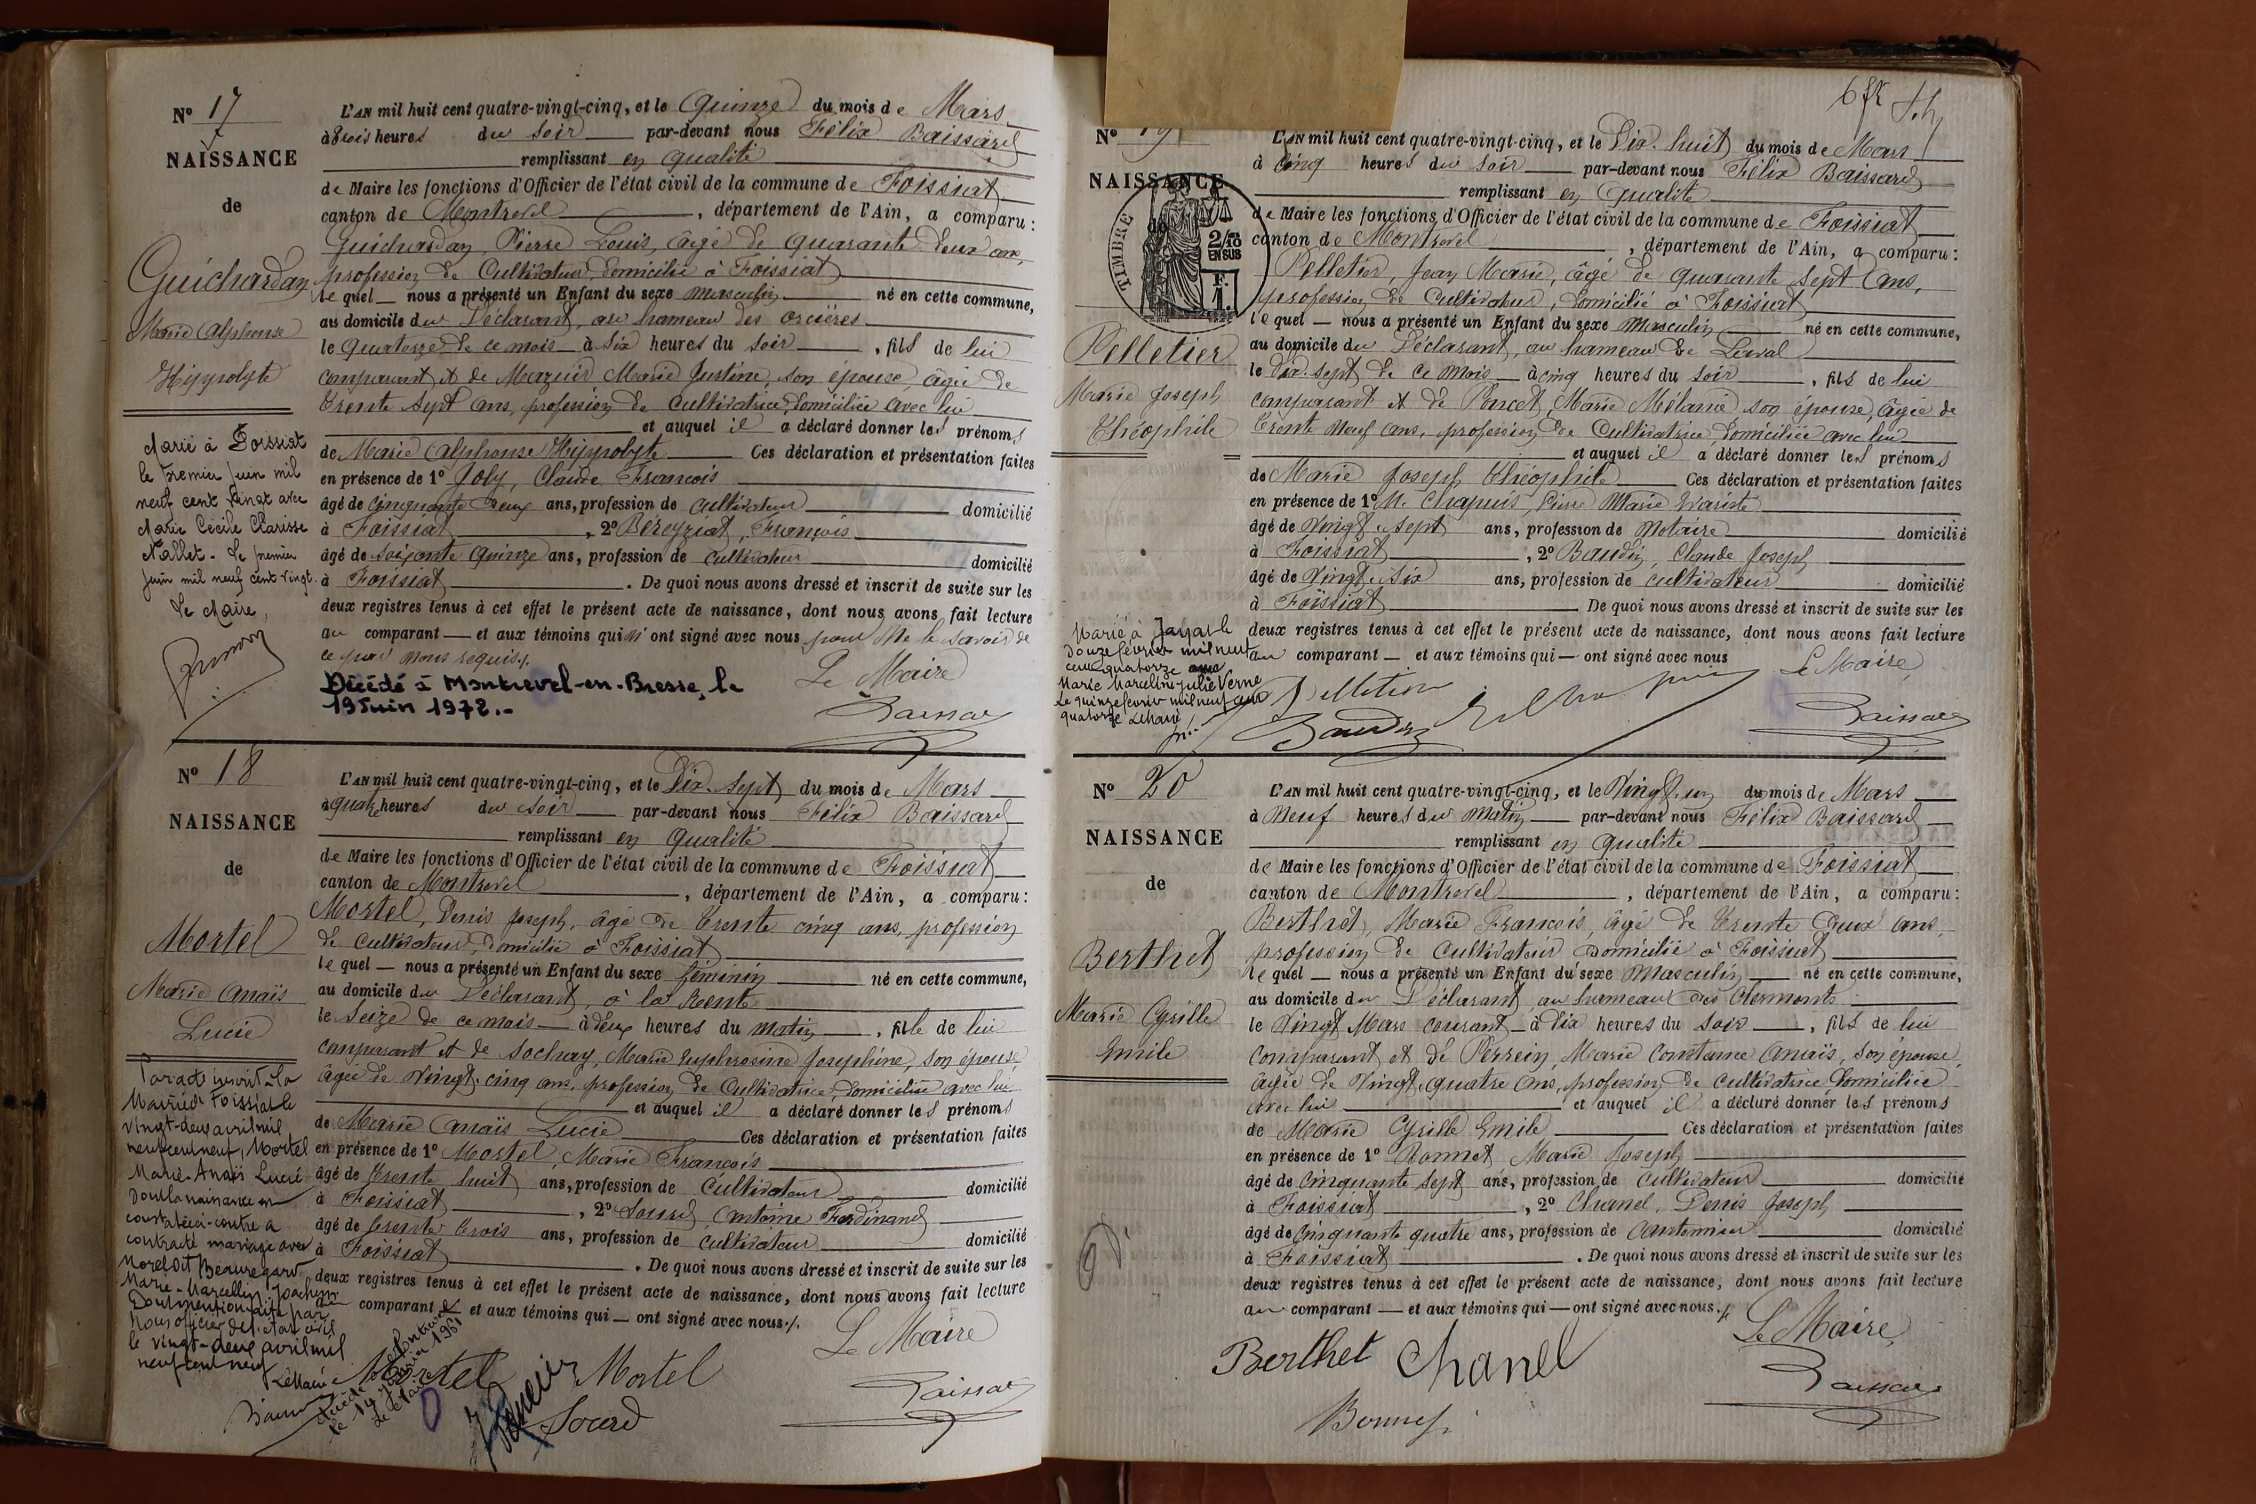 N° 17
NAISSANCE
de
Guichardan
Marie Alphonse
Hyppolyte
Marié à Foissiat
le premier juin mil
neuf cent vingt avec
Marie Cécile Clarisse
Nallet. Le premier
juin mil neuf cent vingt.
Le Maire,
L'AN mil huit cent quatre-vingt-cinq, et le Quinze du mois de Mars
à trois heures du soir par-devant nous Félix Baissard
remplissant en qualité
de Maire les fonctions d'Officier de l'état civil de la commune de Foissiat
canton de Montrevel, département de l'Ain, a comparu :
Guichardan, Pierre Louis, âgé de quarante deux ans,
profession de Cultivateur, domicilié à Foissiat
lequel nous a présenté un Enfant du sexe masculin né en cette commune,
au domicile du Déclarant, au hameau des Orcières
le Quatorze de ce mois à six heures du soir, fils de lui
comparant et de Mazuir Marie Justine, son épouse, âgée de
trente sept ans, profession de Cultivatrice, domiciliée avec lui
et auquel il a déclaré donner les prénoms
de Marie Alphonse Hyppolyte Ces déclaration et présentation faites
en présence de 1° Joly, Claude François
âgé de cinquante deux ans, profession de cultivateur domicilié
à Foissiat, 2° Béreyziat, François
âgé de soixante quinze ans, profession de cultivateur domicilié
à Foissiat. De quoi nous avons dressé et inscrit de suite sur les
deux registres tenus à cet effet le présent acte de naissance, dont nous avons fait lecture
au comparant et aux témoins qui n'ont signé avec nous pour ne le savoir de
ce par nous requis.
Le Maire
Décédé à Montrevel-en-Bresse, le
19 Juin 1972.-
N° 18
NAISSANCE
de
Mortel
Marie Anaïs
Lucie
Par acte inscrit à la
Mairie de Foissiat le
vingt-deux avril mil
neuf cent neuf, Mortel
Marie-Anaïs Lucie
dont la naissance est
constatée ci-contre a
contracté mariage avec
Morel dit Beauregard
Marie-Marcellin Joachim
Dont mention faite par
Nous officier de l'état civil
le vingt-deux avril mil
neuf cent neuf
Le Maire
L'AN mil huit cent quatre-vingt-cinq, et le Dix-Sept du mois de Mars
à quatre heures du soir par-devant nous Félix Baissard
remplissant en qualité
de Maire les fonctions d'Officier de l'état civil de la commune de Foissiat
canton de Montrevel, département de l'Ain, a comparu :
Mortel, Denis Joseph, âgé de trente cinq ans, profession
de Cultivateur, domicilié à Foissiat
lequel nous a présenté un Enfant du sexe féminin né en cette commune,
au domicile du Déclarant, à la Rente
le Seize de ce mois à deux heures du matin, fille de lui
comparant et de Sochay, Marie Euphrosine Joséphine, son épouse,
âgée de vingt-cinq ans, profession de Cultivatrice, domiciliée avec lui
et auquel il a déclaré donner les prénoms
de Marie Anaïs Lucie Ces déclaration et présentation faites
en présence de 1° Mortel, Marie François
âgé de trente huit ans, profession de Cultivateur domicilié
à Foissiat, 2° Sourd, Antoine Ferdinand
âgé de trente trois ans, profession de Cultivateur domicilié
à Foissiat. De quoi nous avons dressé et inscrit de suite sur les
deux registres tenus à cet effet le présent acte de naissance, dont nous avons fait lecture
au comparant et aux témoins qui ont signé avec nous.
Le Maire
Mortel Mortel
Sourd
N° 19
NAISSANCE
de
TIMBRE
2/10 EN SUS
F. 1.
Pelletier
Marie Joseph
Théophile
Marié à Jayat le
douze février mil neuf
cent quatorze avec
Marie Marceline Julie Verne
Le quinze février mil neuf cent
quatorze Le Maire
L'AN mil huit cent quatre-vingt-cinq, et le Dix-huit du mois de Mars
à cinq heures du soir par-devant nous Félix Baissard
remplissant en qualité
de Maire les fonctions d'Officier de l'état civil de la commune de Foissiat
canton de Montrevel, département de l'Ain, a comparu :
Pelletier, Jean Marie, âgé de quarante sept ans,
profession de Cultivateur, domicilié à Foissiat
lequel nous a présenté un Enfant du sexe Masculin né en cette commune,
au domicile du Déclarant, au hameau de Lerval
le Dix-sept de ce mois à cinq heures du soir, fils de lui
comparant et de Poncet, Marie Mélanie son épouse, âgée de
trente neuf ans, profession de Cultivatrice, domiciliée avec lui
et auquel il a déclaré donner les prénoms
de Marie Joseph Théophile Ces déclaration et présentation faites
en présence de 1° M. Chapuis, Pierre Marie Evariste
âgé de vingt-sept ans, profession de Notaire domicilié
à Foissiat, 2° Baudin, Claude Joseph
âgé de vingt-six ans, profession de cultivateur domicilié
à Foissiat. De quoi nous avons dressé et inscrit de suite sur les
deux registres tenus à cet effet le présent acte de naissance, dont nous avons fait lecture
au comparant et aux témoins qui ont signé avec nous
Le Maire,
Baudin
N° 20
NAISSANCE
de
Berthet
Marie Cyrille
Emile
L'AN mil huit cent quatre-vingt-cinq, et le Vingt-un du mois de Mars
à Neuf heures du Matin par-devant nous Félix Baissard
remplissant en qualité
de Maire les fonctions d'Officier de l'état civil de la commune de Foissiat
canton de Montrevel, département de l'Ain, a comparu :
Berthet, Marie François, âgé de trente deux ans,
profession de Cultivateur domicilié à Foissiat
lequel nous a présenté un Enfant du sexe Masculin né en cette commune,
au domicile du Déclarant au hameau des Clermonts
le Vingt Mars courant à dix heures du soir, fils de lui
comparant et de Perrein, Marie Constance Anaïs, son épouse,
âgée de vingt-quatre ans, profession de cultivatrice domiciliée
avec lui et auquel il a déclaré donner les prénoms
de Marie Cyrille Emile Ces déclaration et présentation faites
en présence de 1° Bonnet Marie Joseph
âgé de Cinquante sept ans, profession de Cultivateur domicilié
à Foissiat, 2° Chanel, Denis Joseph
âgé de cinquante quatre ans, profession de Cantonnier domicilié
à Foissiat. De quoi nous avons dressé et inscrit de suite sur les
deux registres tenus à cet effet le présent acte de naissance, dont nous avons fait lecture
au comparant et aux témoins qui ont signé avec nous.
Le Maire,
Berthet Chanel